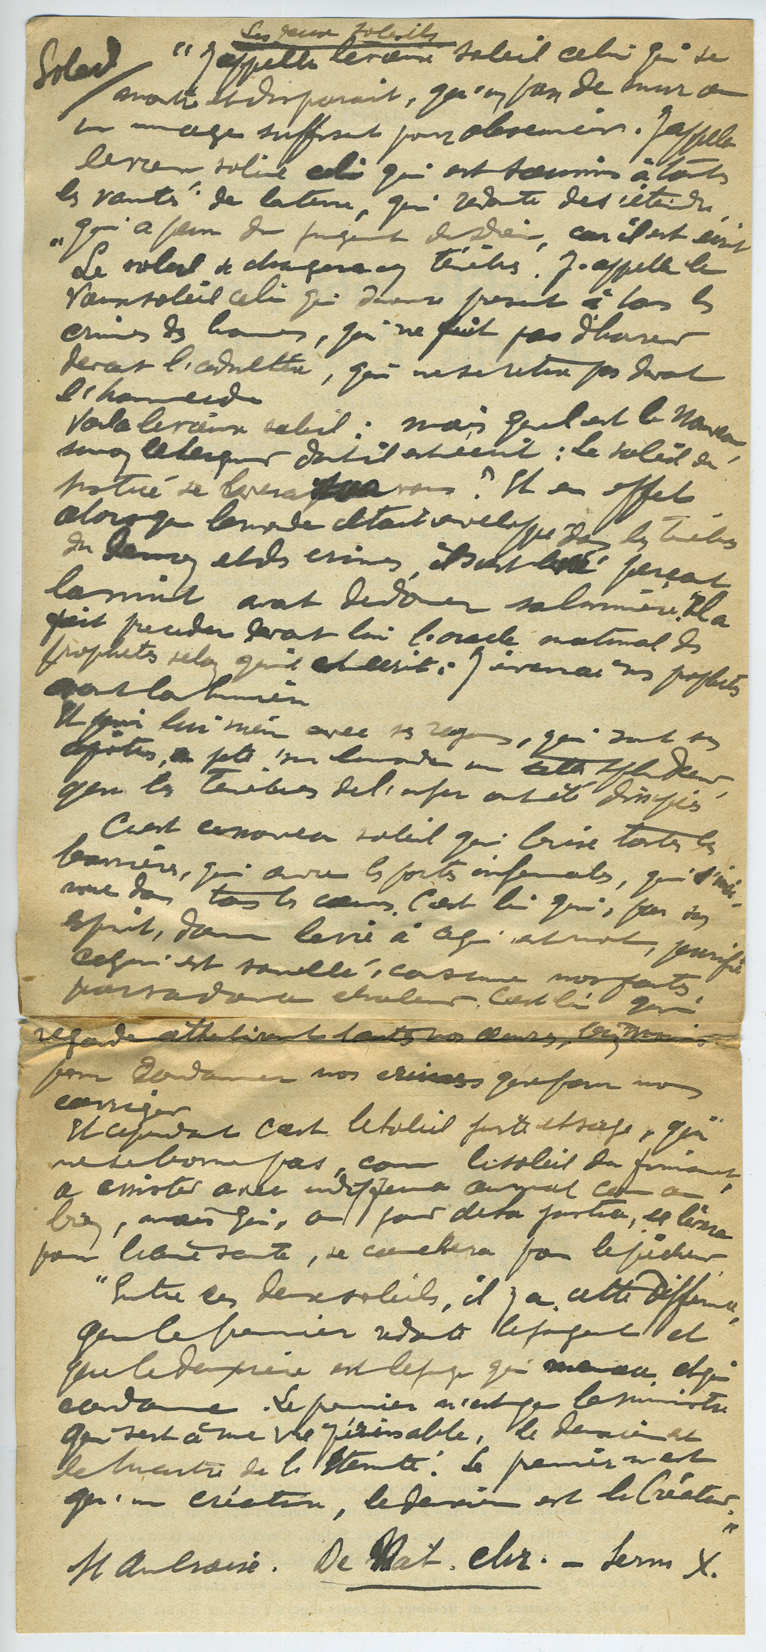 Les deux soleils
Soleil
" J'appelle le vieux soleil celui qui se
montre et disparait, qu'un pan de mur ou
un nuage suffisent pour obscurcir. J'appelle
le vieux soleil celui qui est soumis à toutes
les vanités de la terre, qui redoute de s'éteindre,
qui a peur du jugent de Dieu, car il est écrit
" Le soleil se changera en ténèbres. J'appelle le
vieux soleil celui qui demeure présent à tous les
crimes des hommes, qui ne fuit pas d'horreur
devant l'adultère, qui ne se retire pas devant
l'homicide
Voilà le vieux soleil : mais quel est le nouveau,
sinon le Seigneur dont il est écrit : le soleil de
justice se lèvera pour vous ? Et en effet
alors que le monde était enveloppé dans les ténèbres
du et des crimes, il s'est levé perçant
la nuit avant de donner sa lumière. Il a
fait précéder devant lui l'oracle matinal des
prophètes selon qu'il est écrit : J'enverrai mes prophètes
avant la lumière
Et puis lui même avec ses rayons, qui sont ses
apôtres, a jeté sur le monde une telle splendeur,
que les ténèbres de l'enfer ont été dissipées
C'est ce nouveau soleil qui brise toutes les
barrières, qui ouvre les portes infernales, qui s'insi-
nue dans tous les cœurs. C'est lui qui, par son
esprit, donne la vie à ce qui est mort, purifie
ce qui est souillé, consume nos fautes
par sa douce chaleur. C'est lui qui
regarde attentivement toutes nos œuvres, bien moins
pour condamner nos crimes que pour nous
corriger
Et cependant c'est le soleil juste et sage, qui
ne se borne pas, comme le soleil du firmament,
à assister avec indifférence au mal comme au
bien, mais qui, au jour de sa justice, se lèvera
pour la sainteté, se couchera pour le pécheur
"Entre ces deux soleils, il y a cette différence,
que le premier redoute le jugent et
que le deuxième est le juge qui menace et qui
condamne. Le premier n'est que le ministre
qui sert à une vie périssable, le dernier est
le Maitre de l'Eternité. Le premier n'est
qu'une création, le dernier est le Créateur."
St Ambroise. De Nat. chr. – Serm X.